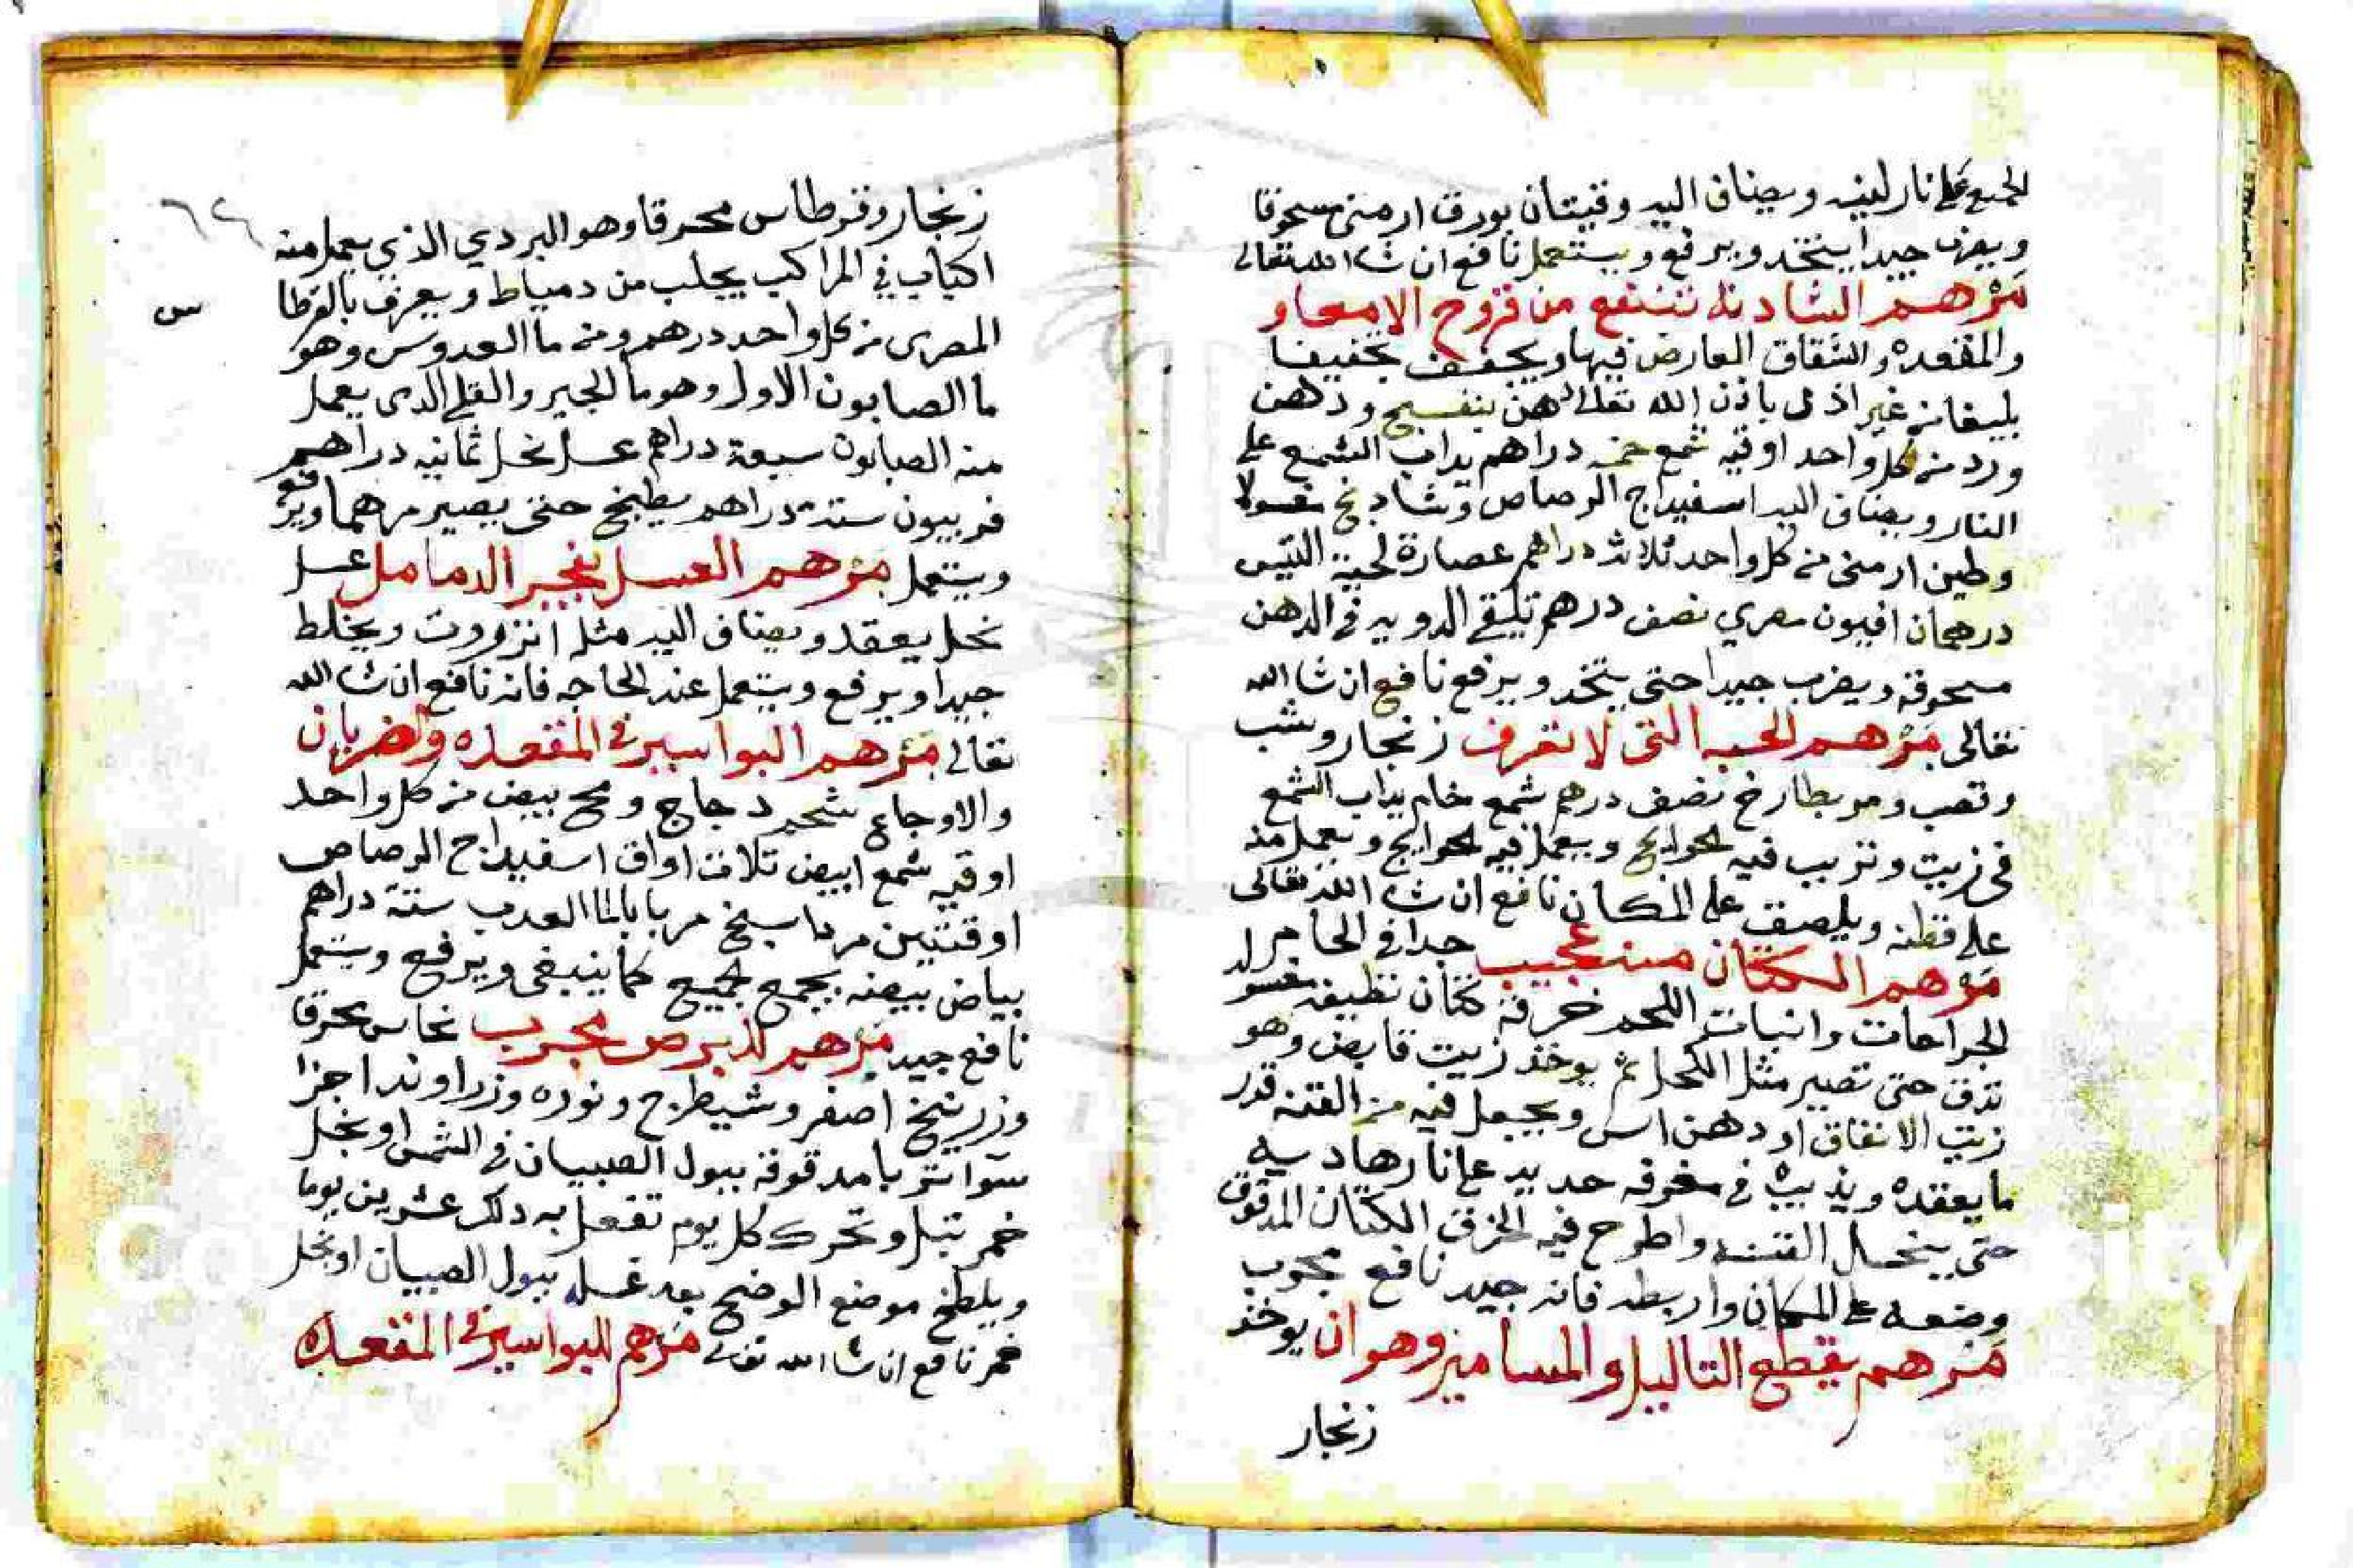 الجميع على نار لينه ويضاف اليه وقيتان بورق ارمنى مسحوقا
ويضرب جيدا يتخد ويرفع ويستعمل نافع ان شا الله تقالى
مرهم الشادنه تنفع من قروح الامعا و
والمقعده والشقاق العارض فيها ويجفف تجفيفا
بليغا من غير اذى باذن الله تعالى دهن بنفسج ودهن
ورد من كل واحد اوقيه شمع خمسه دراهم يداب الشمع على
النار ويضاف اليه اسفيداج الرصاص وشادنج مغسولا
وطين ارمنى من كل واحد ثلاثه دراهم عصارة لحية التيس
درهمان افيون مصري نصف درهم تلقى الادويه فى الدهن
مسحوقة ويضرب جيدا حتى يتخد ويرفع نافع ان شا الله
تقالى مرهم للحبه التى لا تعرف زنجار وشب
وقصب ومر بطارخ نصف درهم شمع خام يداب الشمع
فى زيت وتزيب فيه الحوايج ويعمل فيه الحوايج ويعمل منه
على قطنه ويلصق على المكان نافع ان شا الله تقالى
مرهم الكتان منه عجيب جدا فى الحام
الجراحات وانبات اللحم خرقة كتان نظيفه مغسو
تدق حتى تصير مثل الكحل ثم يوخذ زيت قابض وهو
زيت الانفاق او دهن اس ويجعل فيه من القنه قدر
ما يعقده ويذيبه فى مغرفه حديد على نار هاديه
حتى ينحل القنه واطرح فيه الخرق الكتان المدقوق
وضعه على المكان واربطه فانه جيد نافع مجرب
مرهم يقطع التاليل والمسامير وهو ان يوخذ
زنجار
زنجار وقرطاس محرقا وهو البردي الذي يعمل منه
اكياب في المراكب يجلب من دمياط ويعرف بالقرطا
س
المصرى من كل واحد درهم ومن ما العدوس وهو
ما الصابون الاول وهو ما الجير والقلى الدى يعمل
منه الصابون سبعة دراهم عسل نحل ثمانيه دراهم
فربيون ستة دراهم يطبخ حتى يصير مرهما ويرفع
ويستعمل مرهم العسل يفجر الدمامل عسل
نحل يعقد ويضاف اليه مثله انزروت ويخلط
جيدا ويرفع ويستعمل عند الحاجه فانه نافع ان شا الله
تقالى مرهم البواسير فى المقعده والضربان
والاوجاع شحم دجاج ومح بيض من كل واحد
اوقيه شمع ابيض تلات اواق اسفيداج الرصاص
اوقتين مرداسنج مربا بالما العدب ستة دراهم
بياض بيضه يجمع الجميع كما ينبغى ويرفع ويستعمل
نافع جيد مرهم للبرص مجرب نحاس محرقا
وزرنيخ اصفر وشيطرج ونوره وزراوند اجزا
سوا تتربا مدقوقة ببول الصبيان فى الشمس او بخل
خمر تتبل وتحرك كل يوم تفعل به دلك عشرين يوما
ويلطخ موضع الوضح بعد غسله ببول الصبيان او بخل
خمر نافع ان شا الله تعالى مرهم للبواسير فى المقعده